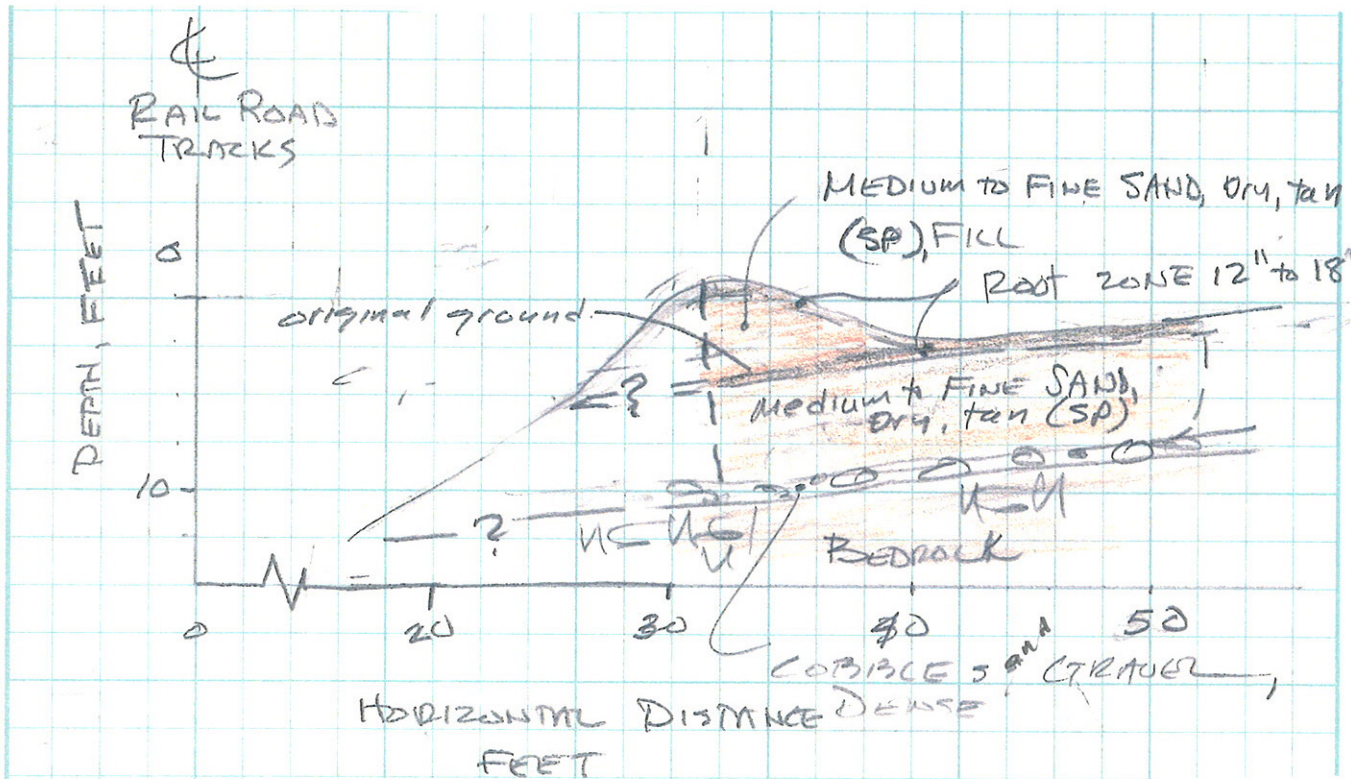 ℄
RAIL ROAD
TRACKS
MEDIUM to FINE SAND, Dry, tan
(SP), FILL
ROOT ZONE 12" to 18"
original ground
DEPTH, FEET
0
10
?
Medium to FINE SAND,
Dry, tan (SP)
?
BEDROCK
0
20
30
40
50
COBBLES and GRAVEL,
DENSE
HORIZONTAL DISTANCE
FEET